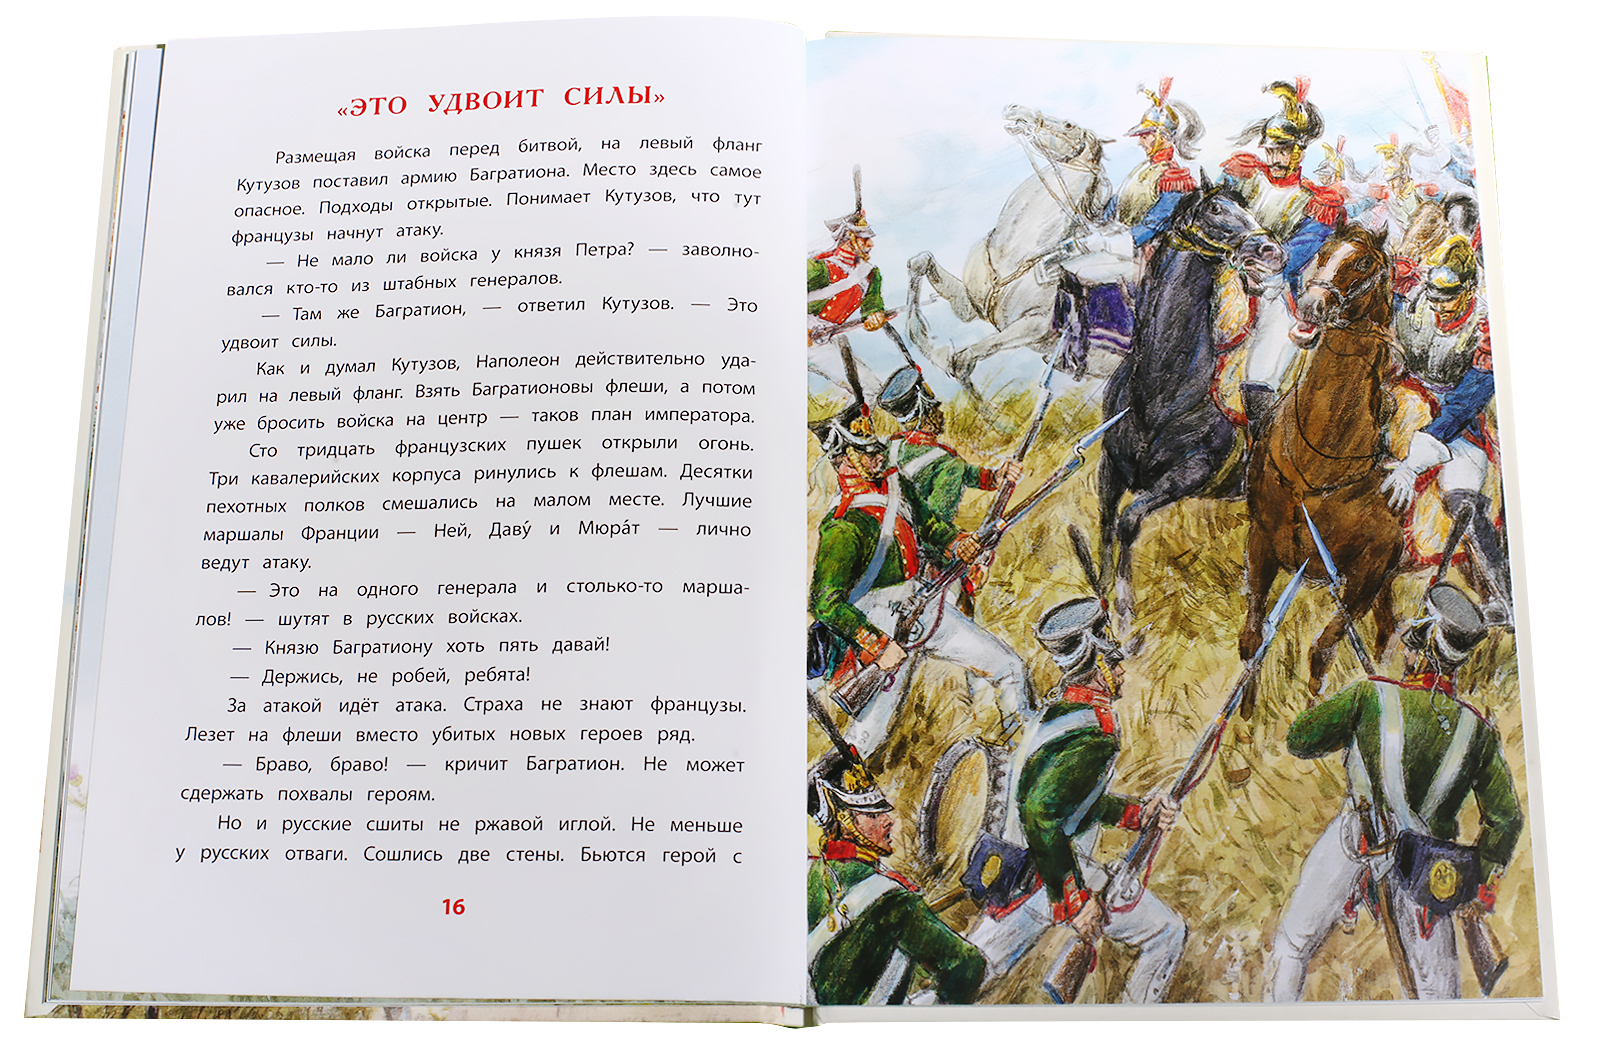 «ЭТО УДВОИТ СИЛЫ»
Размещая войска перед битвой, на левый фланг
Кутузов поставил армию Багратиона. Место здесь самое
опасное. Подходы открытые. Понимает Кутузов, что тут
французы начнут атаку.
— Не мало ли войска у князя Петра? — заволно-
вался кто-то из штабных генералов.
— Там же Багратион, — ответил Кутузов. — Это
удвоит силы.
Как и думал Кутузов, Наполеон действительно уда-
рил на левый фланг. Взять Багратионовы флеши, а потом
уже бросить войска на центр — таков план императора.
Сто тридцать французских пушек открыли огонь.
Три кавалерийских корпуса ринулись к флешам. Десятки
пехотных полков смешались на малом месте. Лучшие
маршалы Франции — Ней, Даву́ и Мюра́т — лично
ведут атаку.
— Это на одного генерала и столько-то марша-
лов! — шутят в русских войсках.
— Князю Багратиону хоть пять давай!
— Держись, не робей, ребята!
За атакой идёт атака. Страха не знают французы.
Лезет на флеши вместо убитых новых героев ряд.
— Браво, браво! — кричит Багратион. Не может
сдержать похвалы героям.
Но и русские сшиты не ржавой иглой. Не меньше
у русских отваги. Сошлись две стены. Бьются герой с
16